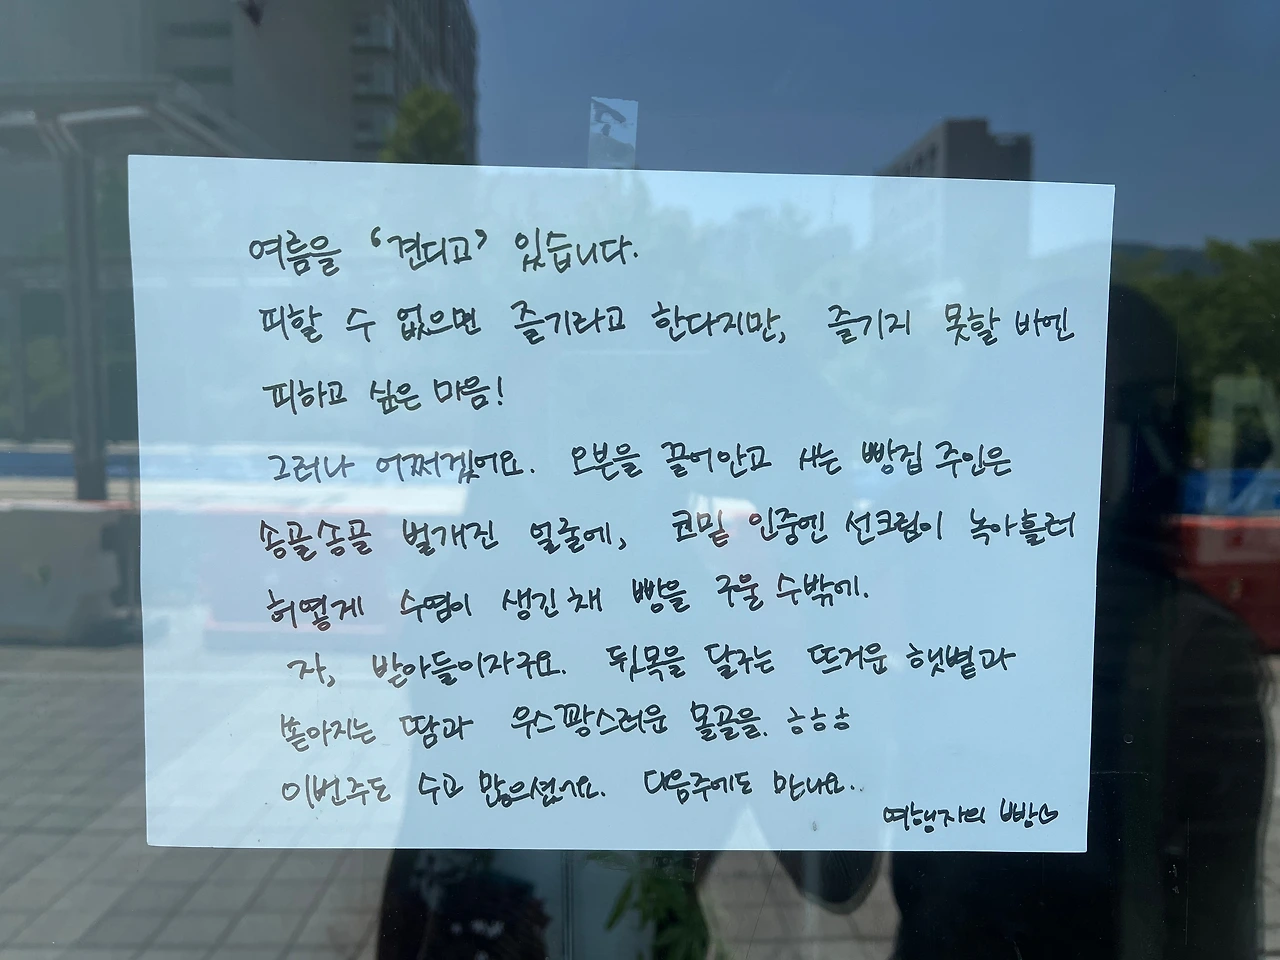 여름을 '견디고' 있습니다.
피할 수 없으면 즐기라고 한다지만, 즐기지 못할 바엔
피하고 싶은 마음!
그러나 어쩌겠어요. 오븐을 끌어안고 사는 빵집 주인은
송골송골 벌개진 얼굴에, 코밑 인중엔 선크림이 녹아흘러
허옇게 수염이 생긴 채 빵을 구울 수밖에.
자, 받아들이자구요. 뒷목을 달구는 뜨거운 햇볕과
쏟아지는 땀과 우스꽝스러운 몰골을. ㅎㅎㅎ
이번주도 수고 많으셨어요. 다음주에도 만나요.
여행자의 빵♡